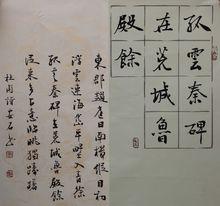 孤雲秦碑
在荒城魯
殿餘
東郡趨庭日南樓縱目初
浮雲連海岱平野入青徐
孤雲秦碑在荒城魯殿餘
從來多古意臨眺獨躊躇
杜甫詩